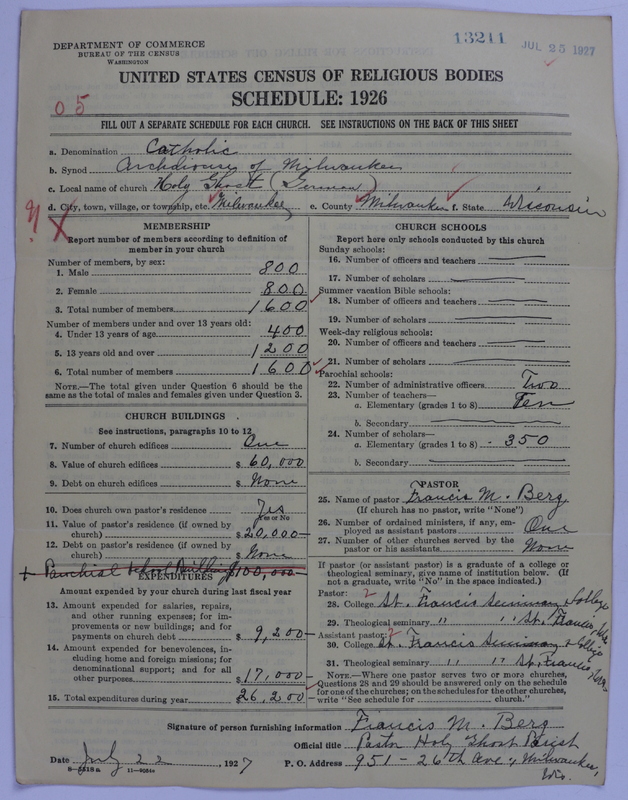 13211
JUL 25 1927
DEPARTMENT OF COMMERCE
BUREAU OF THE CENSUS
WASHINGTON
UNITED STATES CENSUS OF RELIGIOUS BODIES
SCHEDULE: 1926
05
FILL OUT A SEPARATE SCHEDULE FOR EACH CHURCH. SEE INSTRUCTIONS ON THE BACK OF THIS SHEET
a. Denomination Catholic
b. Synod Archdiocese of Milwaukee
c. Local name of church Holy Ghost (German)
d. City, town, village, or township, etc. Milwaukee e. County Milwaukee f. State Wisconsin
MEMBERSHIP
Report number of members according to definition of member in your church
Number of members, by sex:
1. Male 800
2. Female 800
3. Total number of members 1600
Number of members under and over 13 years old:
4. Under 13 years of age 400
5. 13 years old and over 1200
6. Total number of members 1600
NOTE.—The total given under Question 6 should be the same as the total of males and females given under Question 3.
CHURCH BUILDINGS
See instructions, paragraphs 10 to 12
7. Number of church edifices One
8. Value of church edifices $60,000
9. Debt on church edifices $ None
10. Does church own pastor's residence? Yes
Yes or No
11. Value of pastor's residence (if owned by
church) $20,000—
12. Debt on pastor's residence (if owned by
church) $ None
+ Parochial School Building $100,000—
EXPENDITURES
Amount expended by your church during last fiscal year
13. Amount expended for salaries, repairs,
and other running expenses; for im-
provements or new buildings; and for
payments on church debt $ 9,200—
14. Amount expended for benevolences, in-
cluding home and foreign missions; for
denominational support; and for all
other purposes $17,000—
15. Total expenditures during year $26,200—
CHURCH SCHOOLS
Report here only schools conducted by this church
Sunday schools:
16. Number of officers and teachers
17. Number of scholars
Summer vacation Bible schools:
18. Number of officers and teachers
19. Number of scholars
Week-day religious schools:
20. Number of officers and teachers
21. Number of scholars
Parochial schools:
22. Number of administrative officers Two
23. Number of teachers—
a. Elementary (grades 1 to 8) Ten
b. Secondary
24. Number of scholars—
a. Elementary (grades 1 to 8) - 350
b. Secondary
PASTOR
25. Name of pastor Francis M. Berg
(If church has no pastor, write "None")
26. Number of ordained ministers, if any, em-
ployed as assistant pastors One
27. Number of other churches served by the
pastor or his assistants None
If pastor (or assistant pastor) is a graduate of a college or
theological seminary, give name of institution below. (If
not a graduate, write "No" in the space indicated.)
Pastor:
28. College St. Francis Seminary & College
29. Theological seminary " " St. Francis Wis.
Assistant pastor:
30. College St. Francis Seminary & College
31. Theological seminary " " St. Francis Wis.
NOTE.—Where one pastor serves two or more churches,
Questions 28 and 29 should be answered only on the schedule
for one of the churches; on the schedules for the other churches,
write "See schedule for church."
Signature of person furnishing information Francis M. Berg
Official title Pastor Holy Ghost Parish
Date July 22, 1927 P. O. Address 951 - 26th Ave, Milwaukee,
Wis.